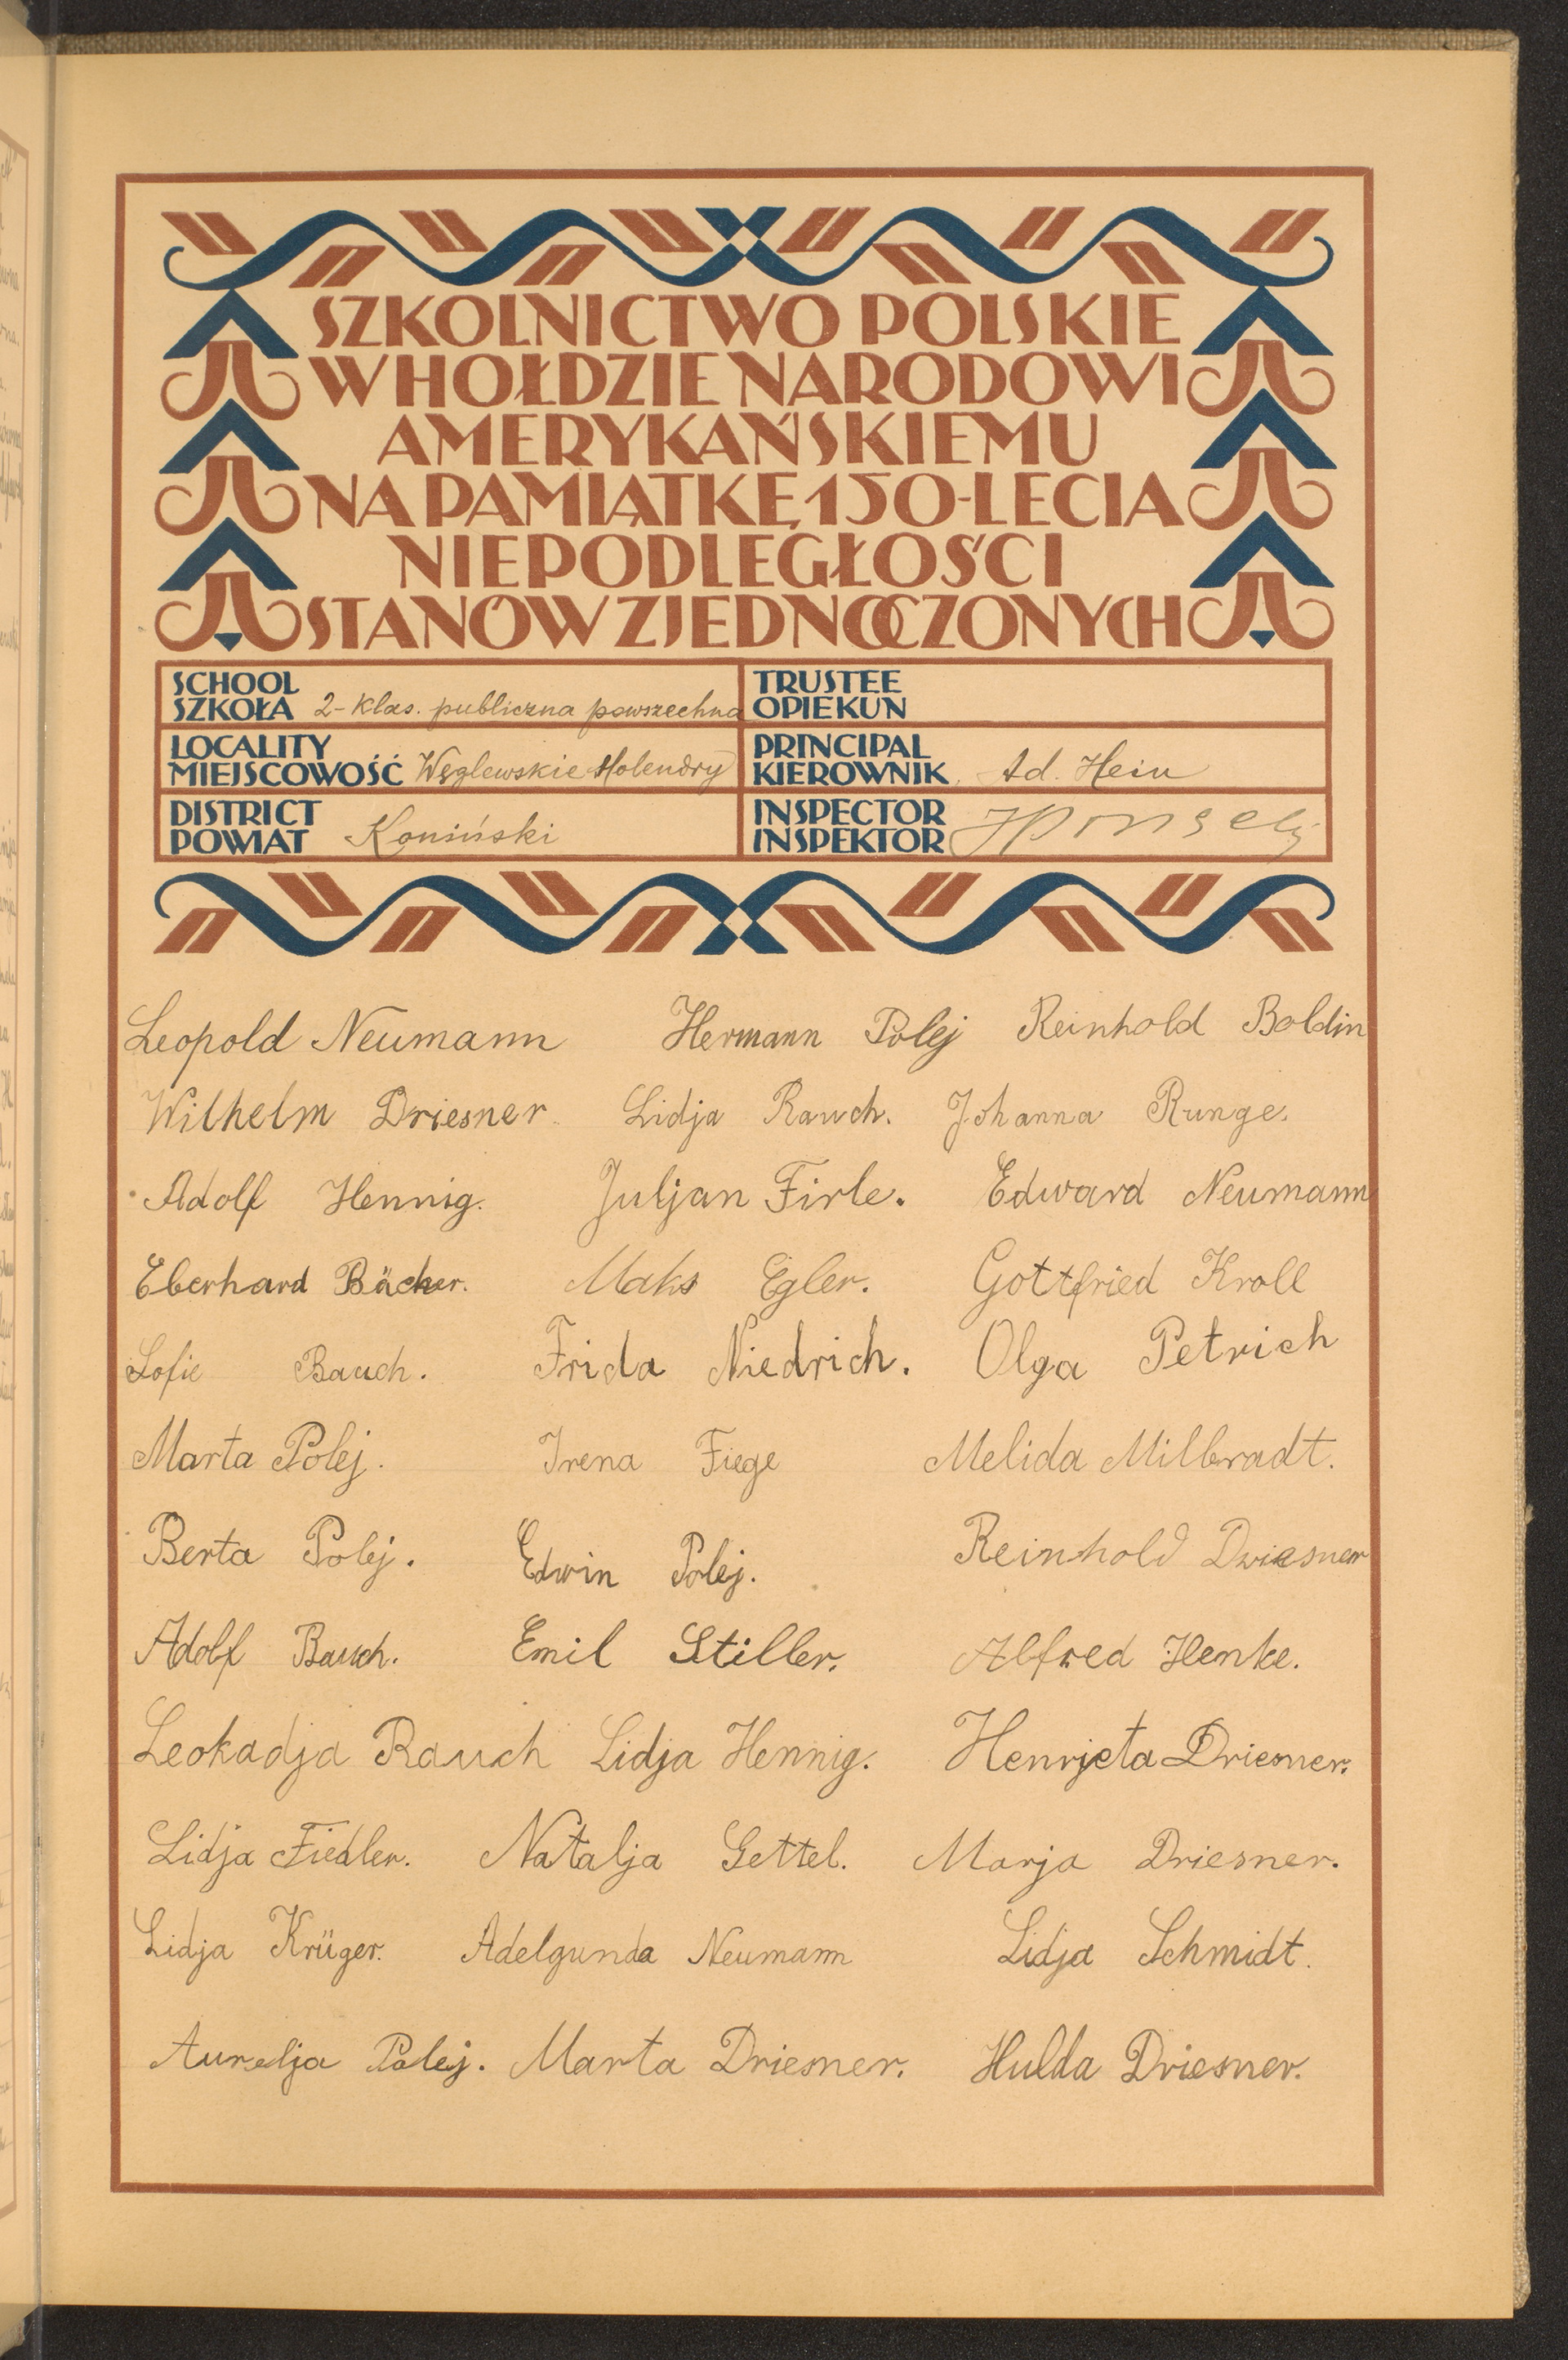 SZKOLNICTWO POLSKIE
W HOŁDZIE NARODOWI
AMERYKAŃSKIEMU
NA PAMIĄTKĘ 150-LECIA
NIEPODLEGŁOŚCI
STANÓW ZJEDNOCZONYCH
SCHOOL
SZKOŁA 2-klas. publiczna powszechna
TRUSTEE
OPIEKUN
LOCALITY
MIEJSCOWOŚĆ Węglewskie Holendry
PRINCIPAL
KIEROWNIK Ad. Hein
DISTRICT
POWIAT Koniński
INSPECTOR
INSPEKTOR
Leopold Neumann Hermann Polej Reinhold Boldin
Wilhelm Driesner Lidja Rauch. Johanna Runge.
Adolf Hennig. Juljan Firle. Edward Neumann
Eberhard Bäcker. Maks Egler. Gottfried Kroll
Zofie Bauch. Frida Niedrich. Olga Petrich
Marta Polej. Irena Fiege Melida Milbradt.
Berta Polej. Edwin Polej. Reinhold Driesner
Adolf Bauch. Emil Stiller. Alfred Henke.
Leokadja Rauch Lidja Hennig. Henrjeta Driesner.
Lidja Fiedler. Natalja Gettel. Marja Driesner.
Lidja Krüger. Adelgunda Neumann Lidja Schmidt.
Aurelja Polej. Marta Driesner. Hulda Driesner.